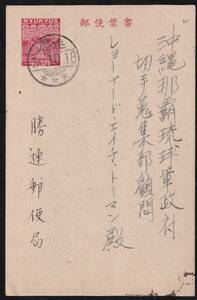 郵便葉書
RYUKYUS
16
沖縄那覇琉球軍政府
切手蒐集部顧問
レオナード・エイチ・トーマン殿
勝連郵便局